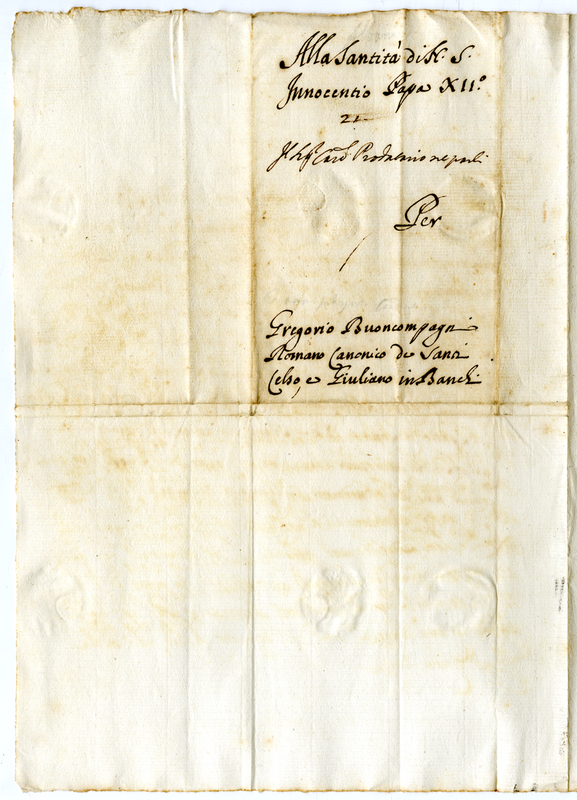 Alla Santità di N. S.
Innocentio Papa XII.º
21
Card. Prodatario ne parli
Per
Gregorio Buoncompagni
Romano Canonico de Santi
Celso, e Giuliano in Banchi